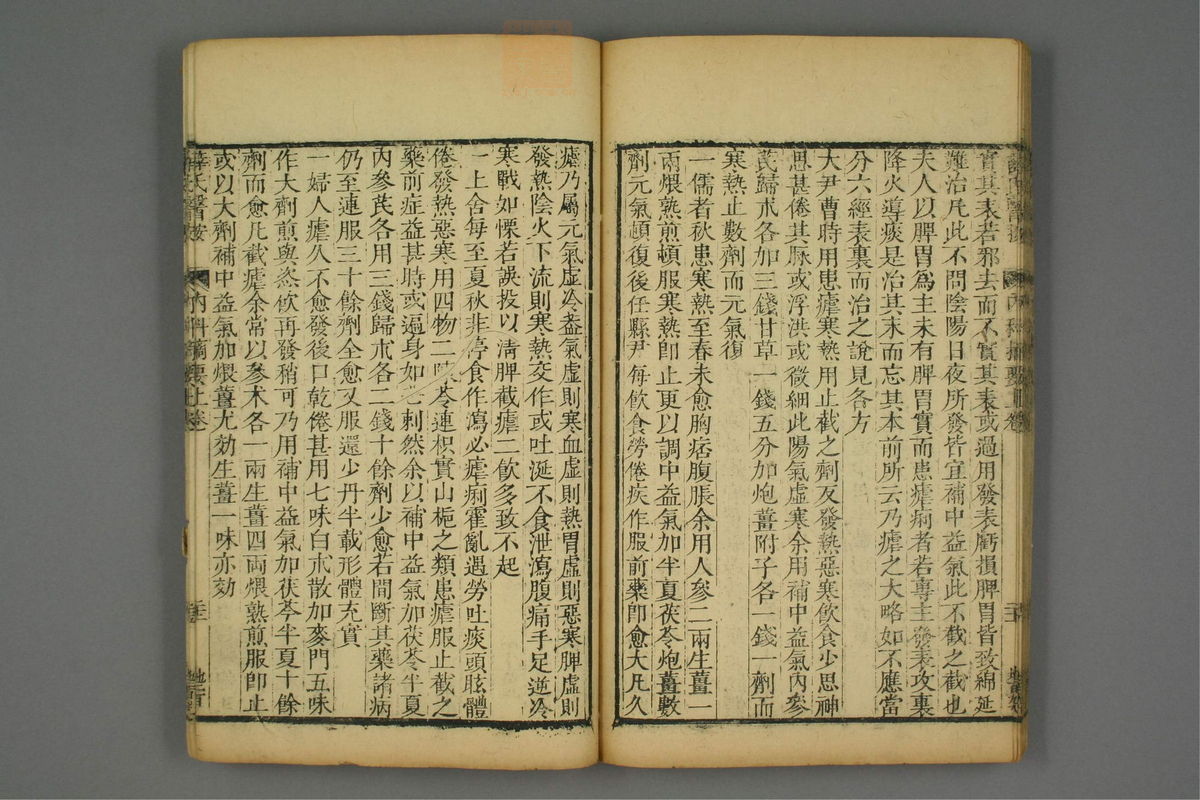 實其表若邪去而不實其表或過用發表虧損脾胃皆致綿延
難治凡此不問陰陽日夜所發皆宜補中益氣此不截之截也
夫人以脾胃為主未有脾胃實而患瘧痢者若專主發表攻裏
降火導痰是治其末而忘其本前所云乃瘧之大略如不應當
分六經表裏而治之說見各方
大尹曹時用患瘧寒熱用止截之劑反發熱惡寒飲食少思神
思甚倦其脉或浮洪或微細此陽氣虛寒余用補中益氣內參
芪歸朮各加三錢甘草一錢五分加炮薑附子各一錢一劑而
寒熱止數劑而元氣復
一儒者秋患寒熱至春未愈胸痞腹脹余用人參二兩生薑一
兩煨熟煎頓服寒熱卽止更以調中益氣加半夏茯苓炮薑數
劑元氣頓復後任縣尹每飲食勞倦疾作服前藥卽愈大凡久
瘧乃屬元氣虛冷盖氣虛則寒血虛則熱胃虛則惡寒脾虛則
發熱陰火下流則寒熱交作或吐涎不食泄瀉腹痛手足逆冷
寒戰如慄若誤投以清脾截瘧二飲多致不起
一上舍每至夏秋非停食作瀉必瘧痢霍亂遇勞吐痰頭眩體
倦發熱惡寒用四物二陳芩連枳實山梔之類患瘧服止截之
藥前症益甚時或遍身如芒刺然余以補中益氣加茯苓半夏
內參芪各用三錢歸朮各二錢十餘劑少愈若間斷其藥諸病
仍至連服三十餘劑全愈又服還少丹半載形體充實
一婦人瘧久不愈發後口乾倦甚用七味白朮散加麥門五味
作大劑煎與恣飲再發稍可乃用補中益氣加茯苓半夏十餘
劑而愈凡截瘧余常以參朮各一兩生薑四兩煨熟煎服卽止
或以大劑補中益氣加煨薑尤効生薑一味亦効
薛氏醫按
內科摘要上卷